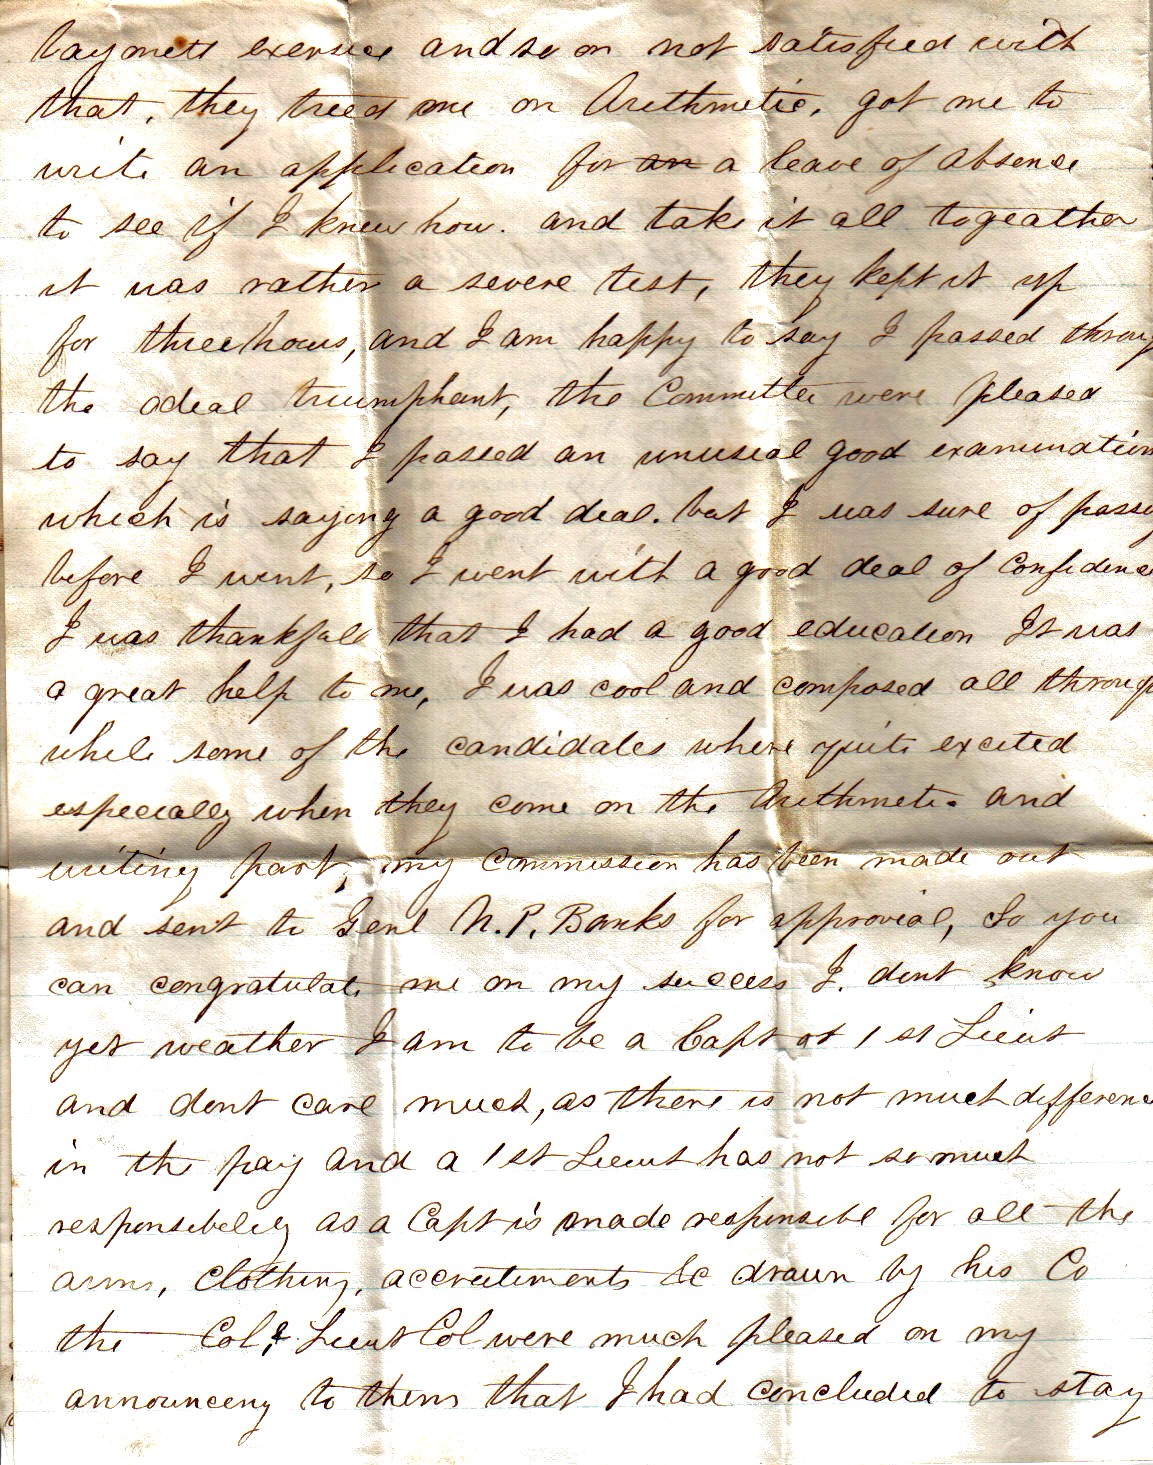 bayonett exersice and so on not satisfied with
that, they treed me on Arithmetic, got me to
write an application for an a leave of absence
to see if I knew how. and take it all togeather
it was rather a severe test, they kept it up
for three hours, and I am happy to say I passed throug
the odeal triumphant, the Committee were pleased
to say that I passed an unusial good examination
which is saying a good deal. but I was sure of passy
before I went, so I went with a good deal of Confidence
I was thankfull that I had a good education It was
a great help to me, I was cool and composed all throug
while some of the candidates where quite excited
especially when they come on the Arithmetic and
writing part, my Commission has been made out
and sent to Genl N. P. Banks for approvial, So you
can congratulate me on my success I. dont know
yet weather I am to be a Capt ot 1st Lieut
and dont care much, as there is not much differenc
in the pay and a 1st Lieut has not so much
responsibeliey as a Capt is made responsibl for all the
arms, Clothing, accreutiments &c drawn by his Co
the Col, & Lieut Col were much pleased on my
announceny to them that I had concluded to stay